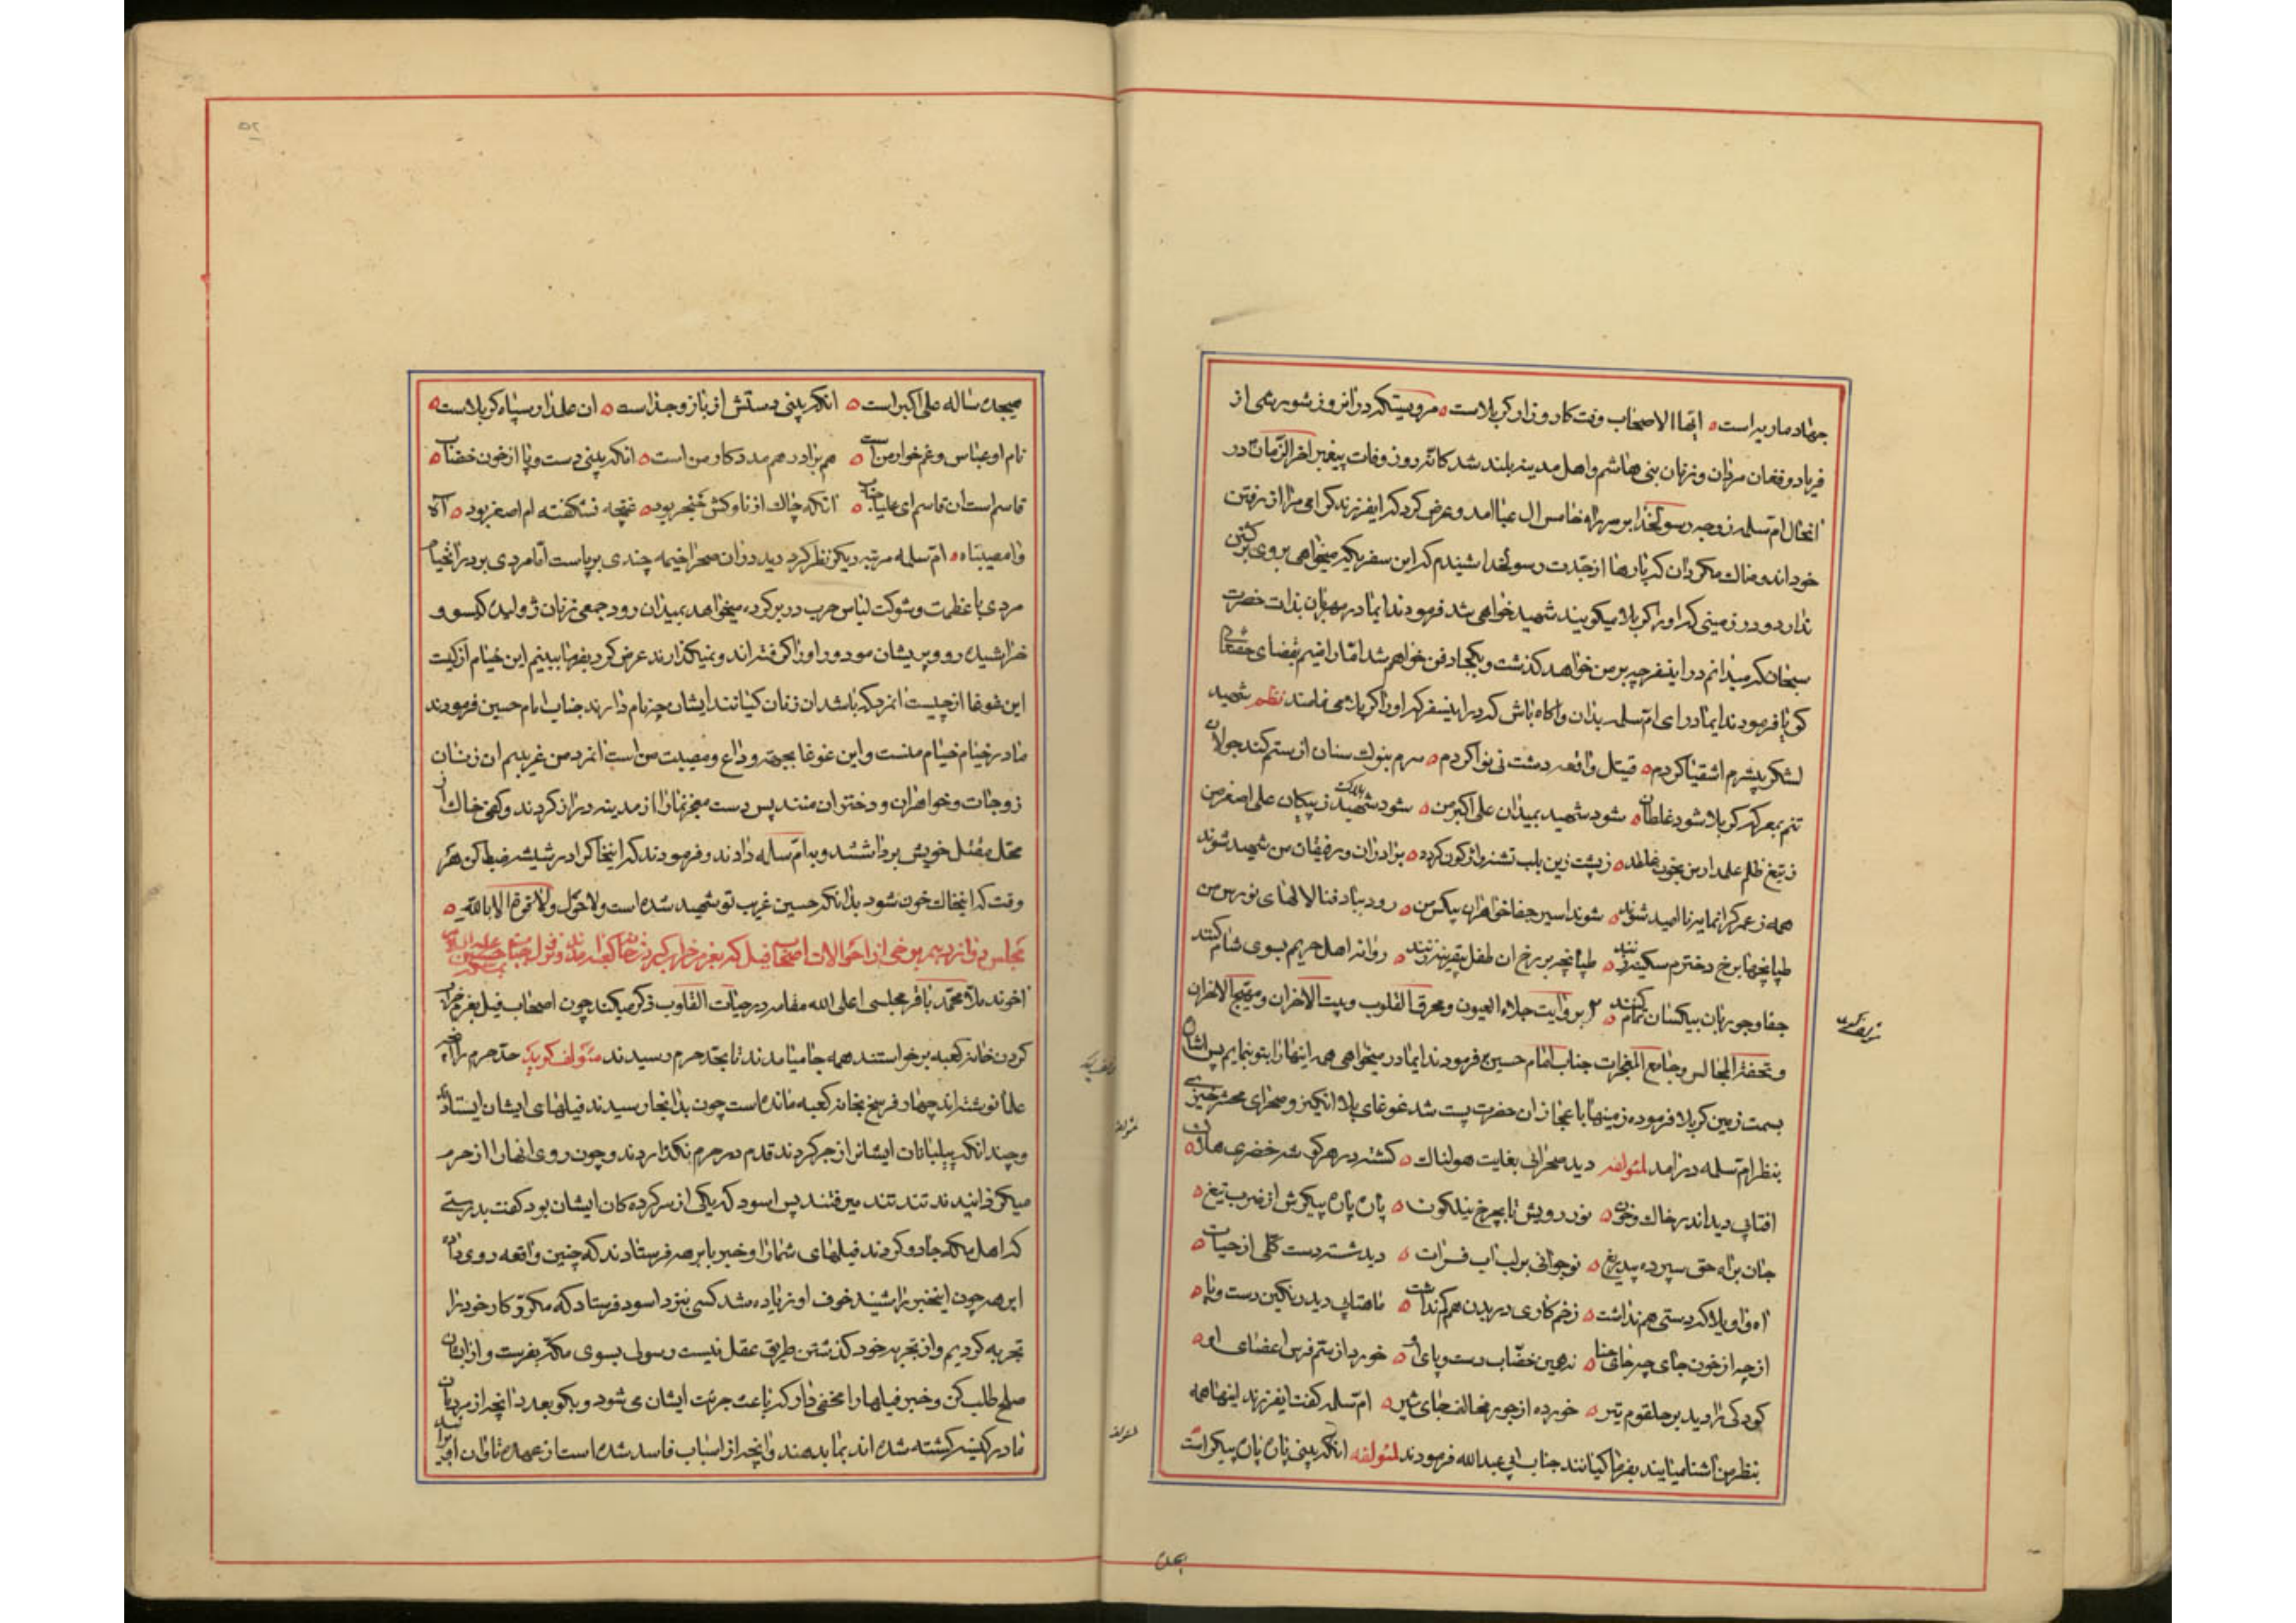 جهاد ماریه است ایها الاصحاب وقت کار و زار کربلاست مرویستکه در انروز شور شی از
فریاد و فغان مردان و زنان بنی هاشم و اهل مدینه بلند شد کانه روز وفات پیغمبر اخر الزمان در
انحال ام سلمه زوجه رسولخدا بر سر راه خامس ال عبا امد و عرض کرد که ایفرزند کرامی مرا از رفتن
خود اندوهناک مکردان که بارها از جدت رسولخدا شنیدم که این سفر یکه میخواهی بروی برکشتن
ندارد و در زمینی که او را کربلا میکویند شهید خواهی شد فرمودند ایمادر مهربان بذات حضرت
سبحان که میدانم در اینسفر چه بر من خواهد کذشت و بکجا دفن خواهم شد اما راضیم بقضای
کویا فرمودند ایمادر ای ام سلمه بدان و اکاه باش که در اینسفر که او را کربلا می نامند نظم شهید
لشکر بیشرم اشقیا کردم قتیل واقعه دشت نینوا کردم سرم بنوک سنان از ستم کند جولان
تنم بمعرکه کربلا شود غلطان شود شهید بمیدان علی اکبر من شود ز پیکان علی اصغر من
ز تیغ ظلم علمدار من بخون غلطد ز پشت زین بلب تشنه واژکون کردد برادران و رفیقان من شهید شوند
همه ز عمر کرانمایه نا امید شوند شوند اسیر جفا خواهران بیکس من رود بباد فنا لالهای نورس من
طپانچها برخ دخترم سکینه زنند طپانچه بر رخ ان طفل بیقرینه زنند روانه اهل حریمم بسوی شام کنند
جفا و جور بان بیکسان تمام کنند بروایت جلاء العیون و محرق القلوب و بیت الاحزان و مهیج الاحزان
و تحفة المجالس و جامع المعجزات جناب امام حسین فرمودند ایمادر میخواهی همه اینها را بتو بنمایم پس اشاره
بسمت زمین کربلا فرموده زمینها باعجاز ان حضرت پست شد غوغای بلا انکیز و صحرای محشر خیز
بنظر ام سلمه در امد لمؤلفه دید صحرائی بغایت هولناک کشته در هر کوشه خضری هلاک
افتابی دید اندر خاک و خون نور رویش تا بچرخ نیلکون پاره پاره پیکرش از ضرب تیغ
جان براه حق سپرده بیدریغ نوجوانی بر لب اب فرات دید شسته دست کلی از حیات
اه و اویلا که دستی هم نداشت زخم کاری در بدن هم کم نداشت ماهتابی دید رنکین دست و پا
از چه از خون جای چه جای حنا نه همین خضاب دست و پای او خورد از ستم فرس اعضای او
کودکی را دید بر حلقوم تیر خورده از جور مخالف جای شیر ام سلمه کفت ایفرزند اینها همه
بنظر من اشنا میایند بفرما کیانند جناب ابی عبدالله فرمودند لمؤلفه انکه بینی پاره پاره پیکر است
هیجده ساله علی اکبر است انکه بینی دستش از بازو جداست ان علمدار سپاه کربلاست
نام او عباس و غم خوار من است هم برادر هم مددکار من است انکه بینی دست و پا از خون خضاب
قاسم است ان قاسم ای علیا جناب انکه چاک از ناوکش حنجر بود غنچه نشکفته ام اصغر بود آه
وا مصیبتاه ام سلمه مرتبه دیکر نظر کرد دید در ان صحرا خیمه چندی برپاست اما مردی بر در انخیام
مردی با عظمت و شوکت لباس حرب در بر کرده میخواهد بمیدان رود جمعی زنان ژولیده کیسو و
خراشیده رو و پریشان مو دور او را کرفته اند و نمیکذارند عرض کرد بفرما ببینم این خیام از کیست
این غوغا از چیست انمرد که باشد ان زنان کیانند ایشان چه نام دارند جناب امام حسین فرمودند
مادر خیام خیام منست و این غوغا بجهة وداع و مصیبت من است انمرد من غریبم ان زنان
زوجات و خواهران و دختران منند پس دست معجز نما را از مدینه دراز کردند و کفی خاک از
محل مقتل خویش برداشتند و بام سلمه دادند و فرمودند که اینخاک را در شیشه ضبط کن هر
وقت که اینخاک خون شود بدانکه حسین غریب تو شهید شده است ولا حول ولا قوة الا بالله
مجلس دوازدهم برخی از احوالات اصحاب فیل که بعزم خراب کردن خانه کعبه
اخوند ملا محمد باقر مجلسی اعلی الله مقامه در حیات القلوب ذکر میکند چون اصحاب فیل بعزم خراب
کردن خانه کعبه برخواستند همه جا میامدند تا بحد حرم رسیدند مؤلف کوید حد حرم را
علما نوشته اند چهار فرسخ بخانه کعبه مانده است چون بدانجا رسیدند فیلهای ایشان ایستادند
و چندانکه پیلبانان ایشانرا زجر کردند قدم در حرم نکذاردند و چون روی انها را از حرم
میکردانیدند تند تند میرفتند پس اسود که یکی از سرکرده کان ایشان بود کفت بدرستی
که اهل مکه جادو کردند فیلهای شما را و خبر بابرهه فرستادند که چنین واقعه روی داد
ابرهه چون اینخبر را شنید خوف او زیاده شد کسی بنزد اسود فرستاد که مکر و کار خود را
تجربه کردیم و از تجربه خود کذشتن طریق عقل نیست رسولی بسوی مکه بفرست و از ایشان
صلح طلب کن و خبر فیلها را مخفی دار که باعث جرئت ایشان می شود و بکو بعدد انچه از مردمان
ما در کنیسه کشته شده اند بما بدهند و انچه از اسباب فاسد شده است از عهده تاوان